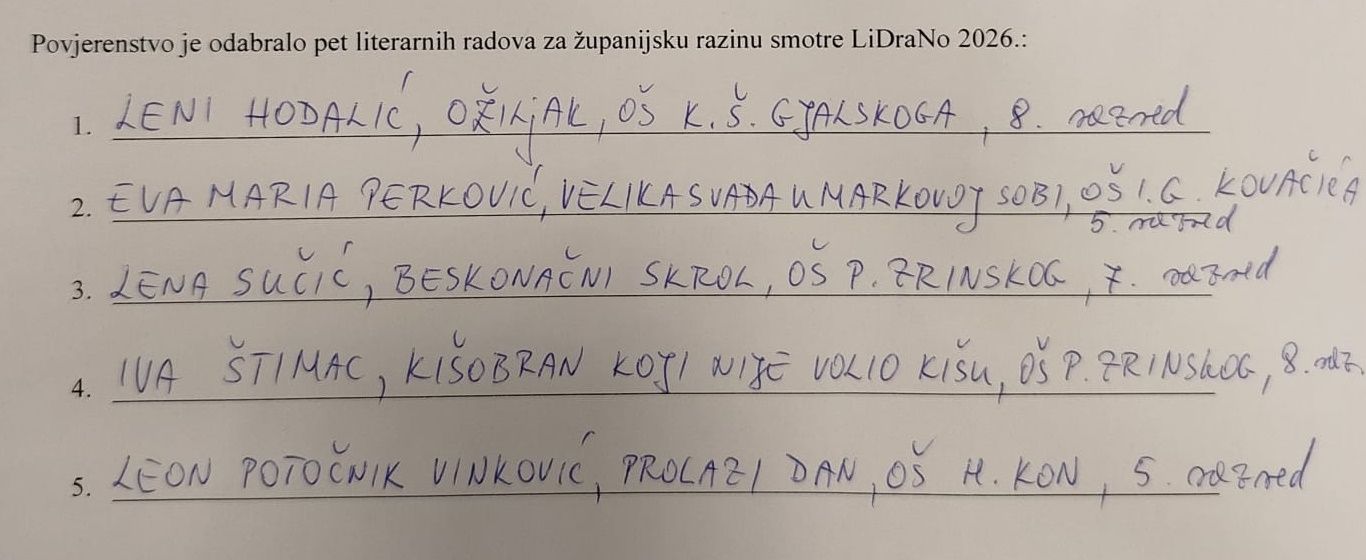 Povjerenstvo je odabralo pet literarnih radova za županijsku razinu smotre LiDraNo 2026.:
1. LENI HODALIĆ, OŽILJAK, OŠ K. Š. GJALSKOGA, 8. razred
2. EVA MARIA PERKOVIĆ, VELIKA SVAĐA U MARKOVOJ SOBI, OŠ I. G. KOVAČIĆA
5. razred
3. LENA SUČIĆ, BESKONAČNI SKROL, OŠ P. ZRINSKOG, 7. razred
4. IVA ŠTIMAC, KIŠOBRAN KOJI NIJE VOLIO KIŠU, OŠ P. ZRINSKOG, 8. raz.
5. LEON POTOČNIK VINKOVIĆ, PROLAZI DAN, OŠ H. KON, 5. razred